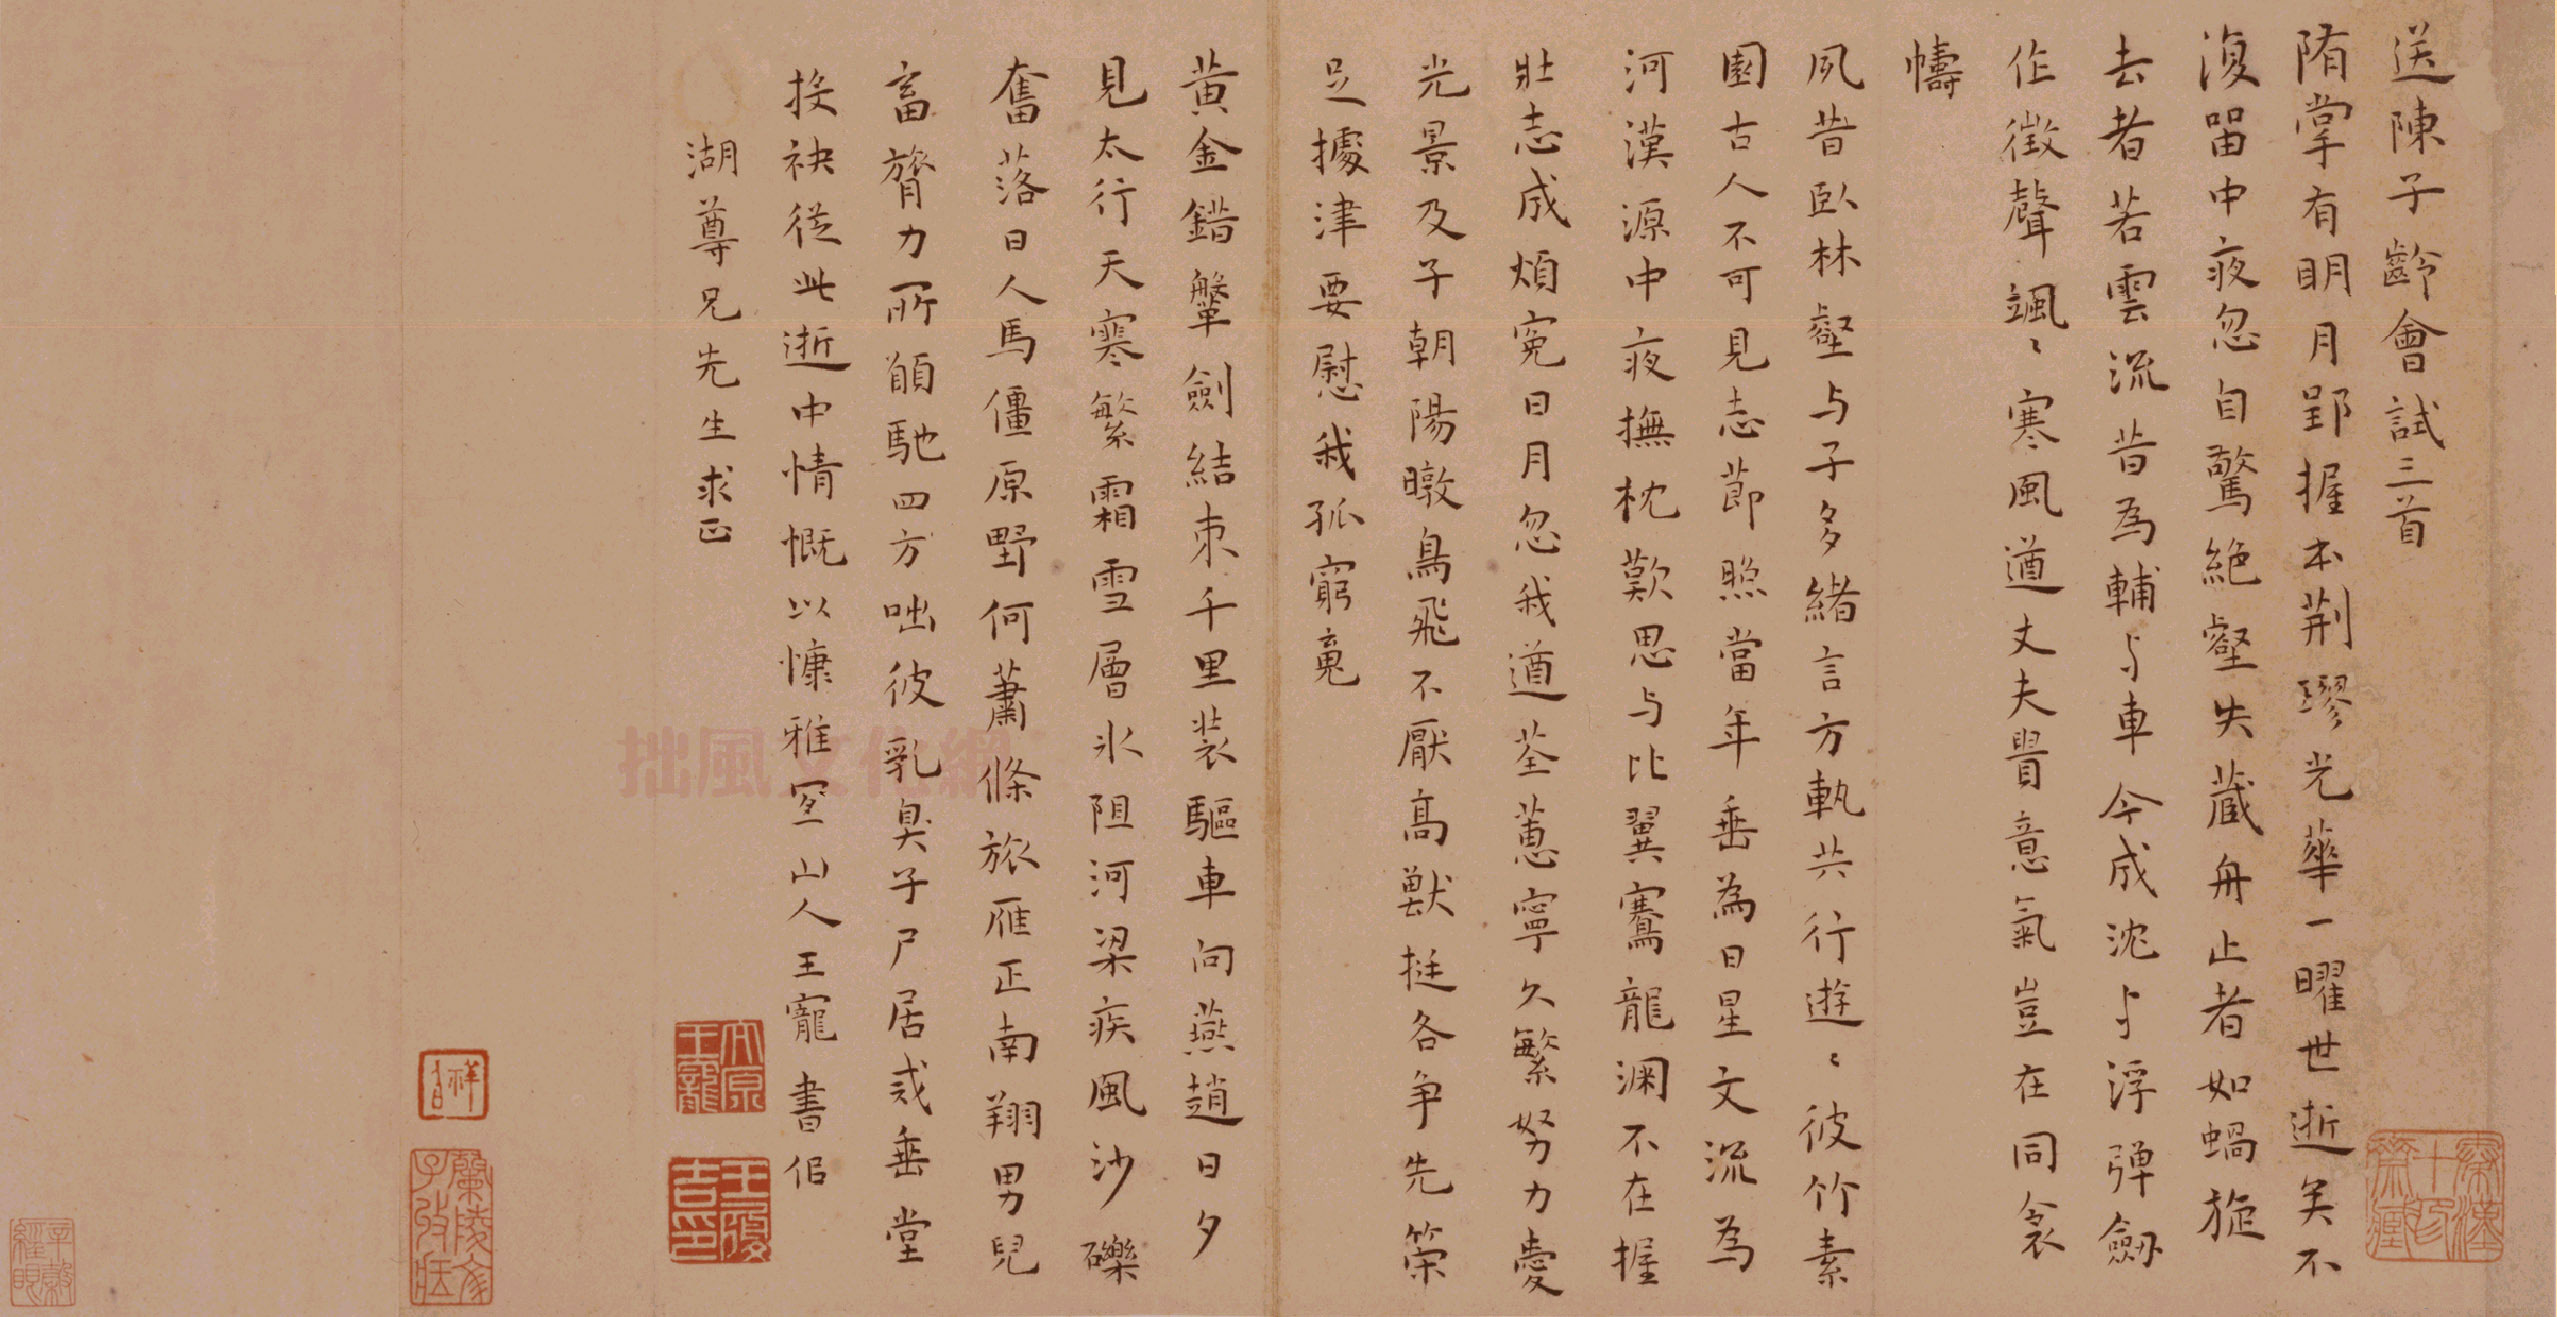 送陳子齡會試三首
隋掌有明月郢握本荆璆光華一曜世逝矣不
復留中夜忽自驚絶壑失藏舟止者如蝸旋
去者若雲流昔為輔与車今成沈与浮彈劒
作徵聲颯〻寒風遒丈夫貴意氣豈在同衾
幬
夙昔臥林壑与子多緒言方軌共行遊〻彼竹素
園古人不可見志節照當年垂為日星文流為
河漢源中夜撫枕歎思与比翼騫龍淵不在握
壯志成煩冤日月忽我遒荃蕙寧久繁努力愛
光景及子朝陽暾鳥飛不厭高獸挺各争先策
足據津要慰我孤窮䰟
黄金錯鞶劍結束千里裝驅車向燕趙日夕
見太行天寒繁霜雪層冰阻河梁疾風沙礫
奮落日人馬僵原野何蕭條旅雁正南翔男兒
富膂力所願馳四方咄彼乳臭子尸居戒垂堂
投袂從此逝中情慨以慷雅宜山人王寵書似
湖尊兄先生求正
太原王寵
王履吉印
拙風文化網